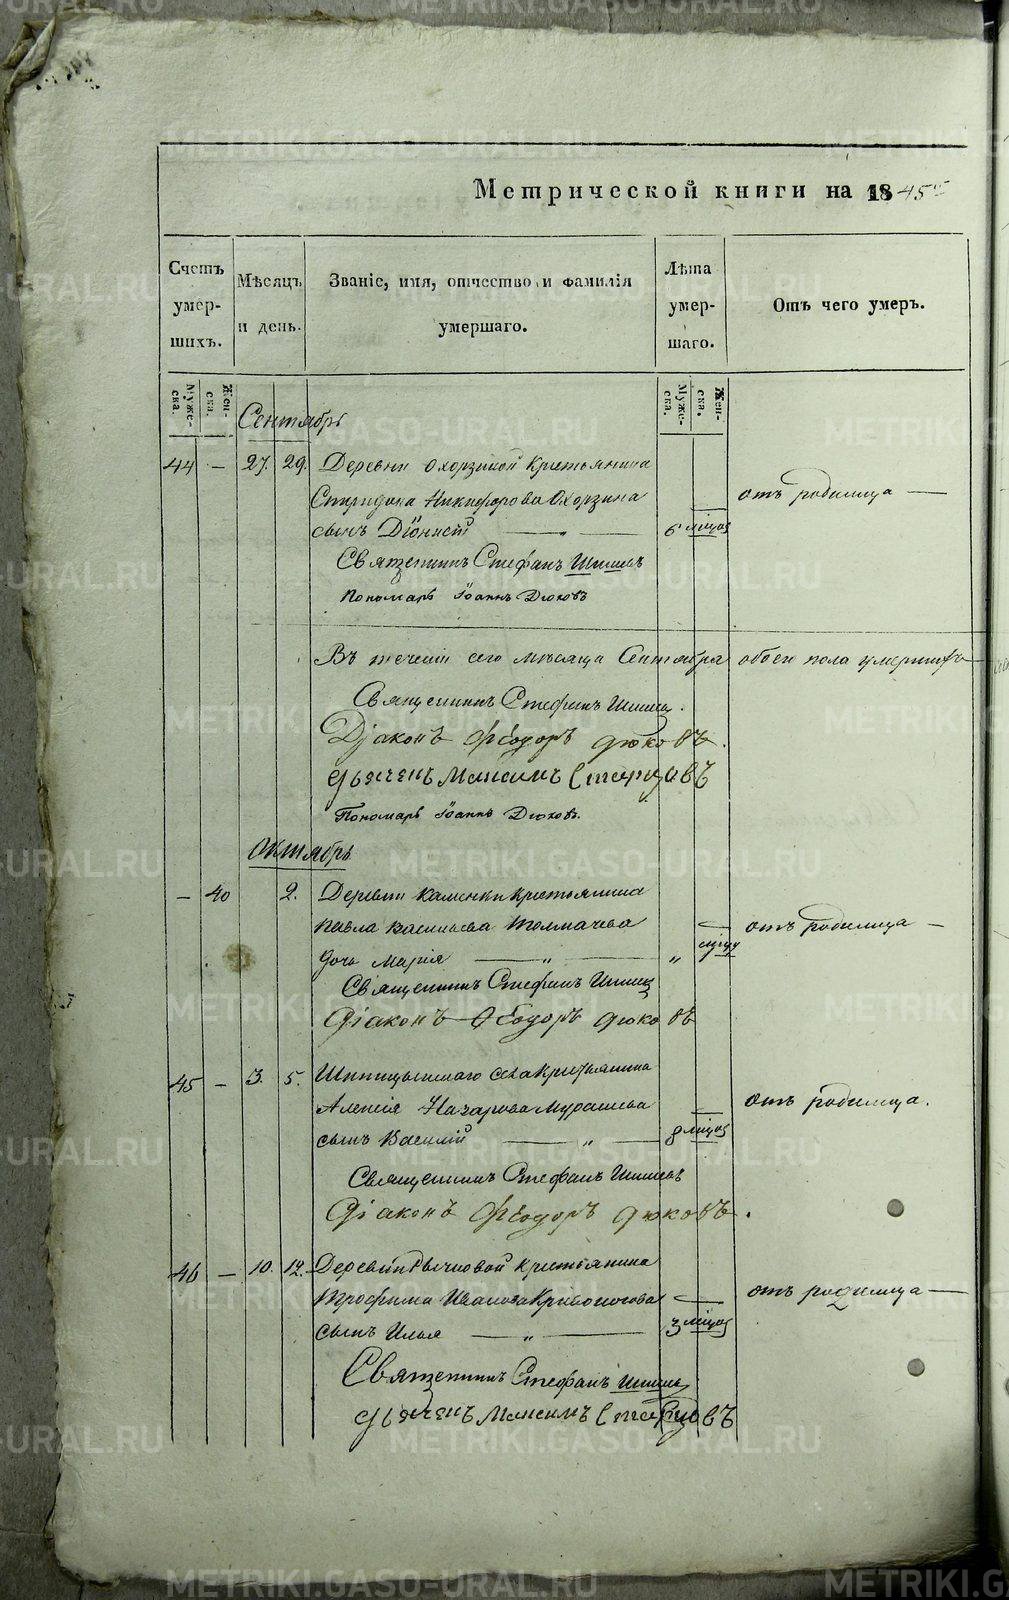 Метрической книги на 1845
Счетъ умер- шихъ.
Мѣсяцъ и день.
Званіе, имя, отчество и фамилія умершаго.
Лѣта умер- шаго.
Отъ чего умеръ.
Муже- ска.
Жен- ска.
Муже- ска.
Жен- ска.
Сентябрь
44 — 27. 29. Деревни Охорзиной Крестьянина
Спиридона Никифорова Охорзина
отъ родимца —
сынъ Діонисій — „ — 6 мѣсяц
Священникъ Стефанъ
Пономарь Іоаннъ Дюковъ
Въ теченіи сего мѣсяца Сентября обоего пола умершихъ
Священникъ Стефанъ
Діаконъ Феодоръ Дюковъ.
Дьячекъ Максимъ Старцовъ
Пономарь Іоаннъ Дюковъ.
Октябрь
— 40 2. Деревни Каменки Крестьянина
Павла Васильева Толмачева
отъ родимца —
дочь Марія — „ — „
Священникъ Стефанъ
Діаконъ Феодоръ Дюковъ
45 — 3. 5. села Крестьянина
Алексія Назарова Мурашева
отъ родимца.
сынъ Василій — „ — 8 мѣсяц
Священникъ Стефанъ
Діаконъ Феодоръ Дюковъ.
46 — 10. 12. Деревни Рычковой Крестьянина
Трофима Иванова Кривоногова
отъ родимца —
сынъ Илья — „ — 3 мѣсяц
Священникъ Стефанъ
Дьячекъ Максимъ Старцовъ
METRIKI.GASO-URAL.RU